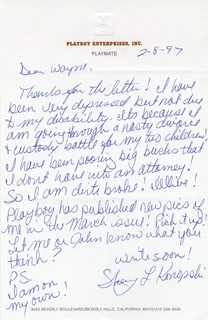 PLAYBOY ENTERPRISES, INC.
PLAYMATE
2-8-97
Dear Wayne,
Thanks for the letter! I have
been very depressed but not due
to my disability. Its because I
am going through a nasty divorce
& custody battle for my two children!
I have been pouring big bucks that
I don't have into an attorney!
So I am dirt broke!
Playboy has published new pics of
me in the March issue! Pick it up!
Let me or John know what you
think?
Write soon!
P.S.
I am on
my own!
8242 BEVERLY BOULEVARD/BEVERLY HILLS, CALIFORNIA